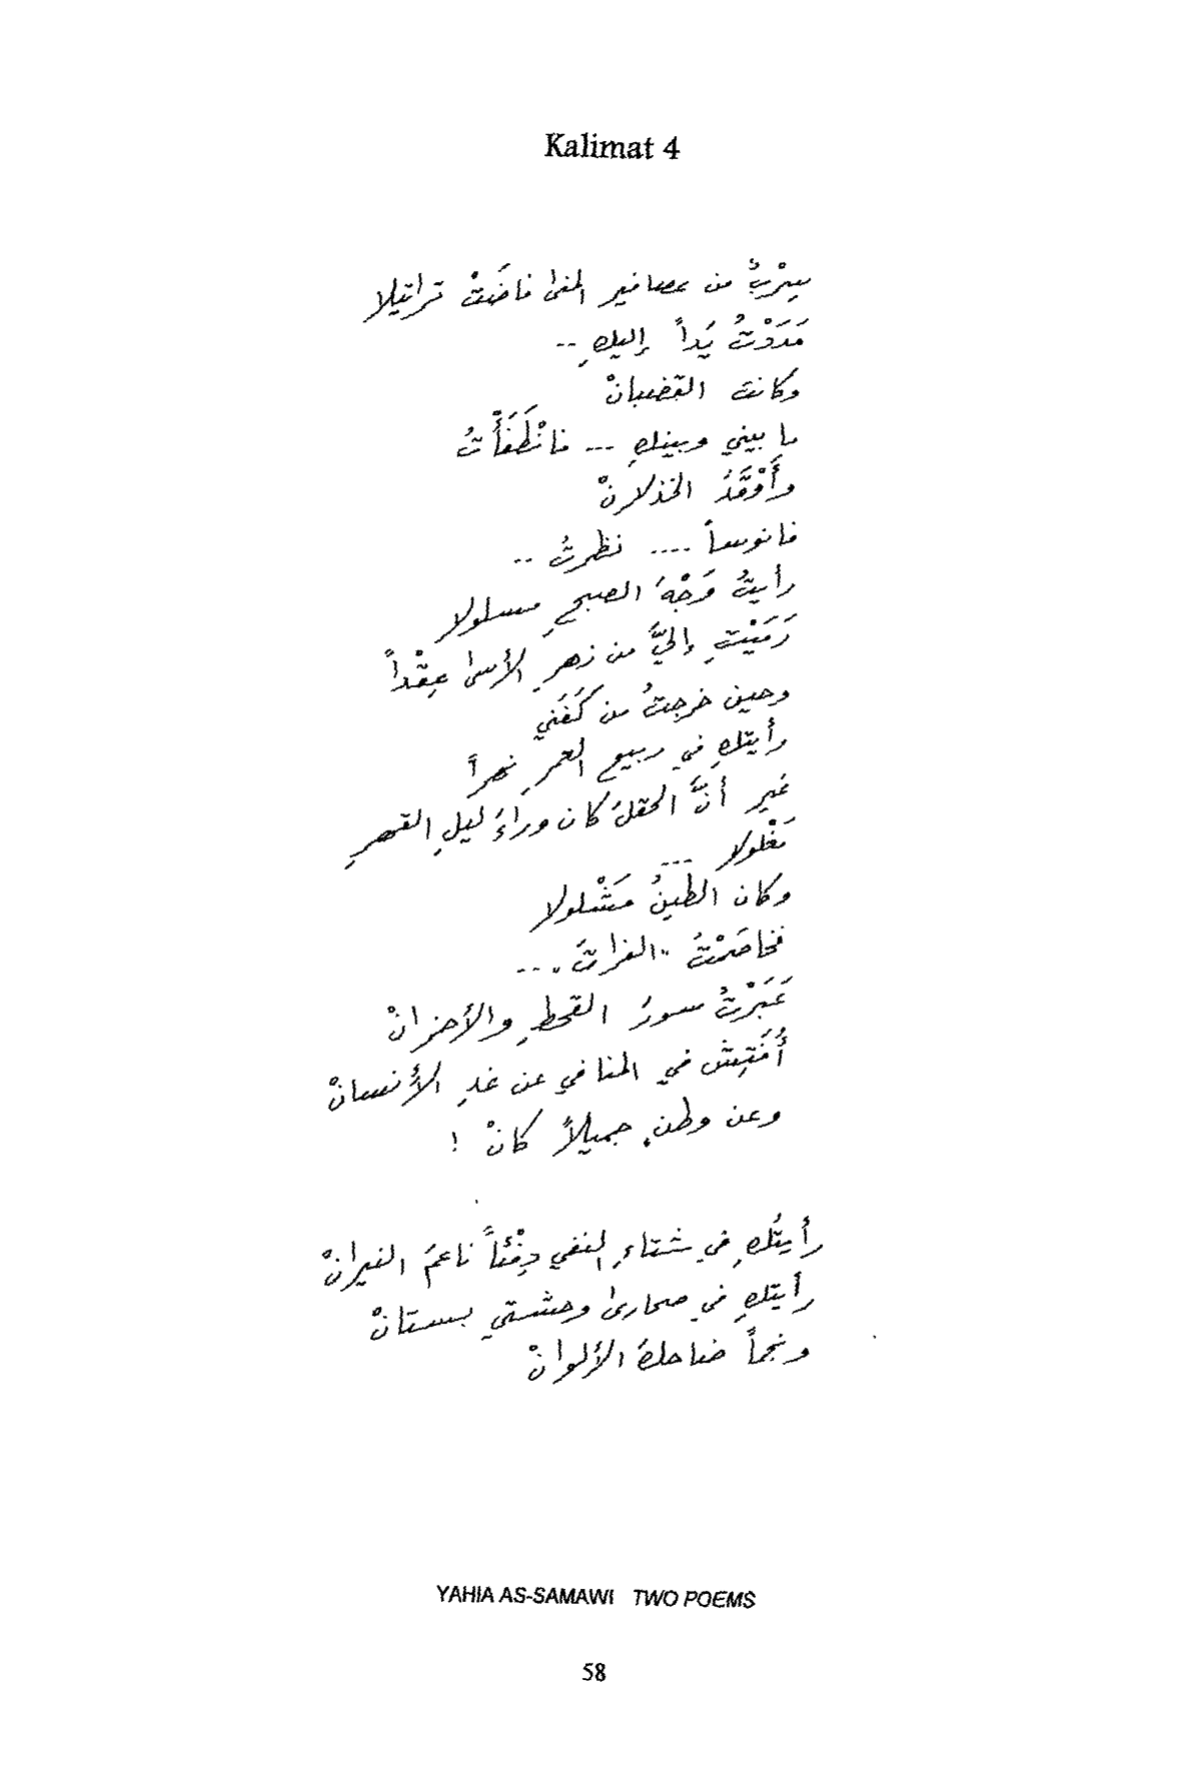 Kalimat 4
سِرْبٌ من عصافير المنى فاضَتْ تراتيلا
مَدَدْتُ يَداً إليكِ ..
وكانت القضبانْ
ما بيني وبينكِ ... فانْطَفَأْتُ
وأَوْقَدُ الخذلانْ
فانوساً .... نظرتُ ..
رأيتُ وَجْهَ الصبحِ مسلولا
رَمَيْتِ إليَّ من زهرِ الأسى عِقْداً
وحين خرجتُ من كَفَني
رأيتكِ في ربيع العمرِ نهراً
غير أنَّ الحقلَ كان وراءَ ليلِ القهرِ
مَغْلولا ...
وكان الطينُ مَشْلولا
فخاصَمْتُ "الفراتَ" ...
عَبَرْتُ سورَ القحطِ والأحزانْ
أُفَتِش في المنافي عن غدِ الأنسانْ
وعن وطنٍ جميلاً كانْ !
رأيتُكِ في شتاءِ النفي دِفْئاً ناعمَ النيرانْ
رأيتكِ في صحارى وحشتي بستانْ
ونجماً ضاحكَ الألوانْ
YAHIA AS-SAMAWI TWO POEMS
58